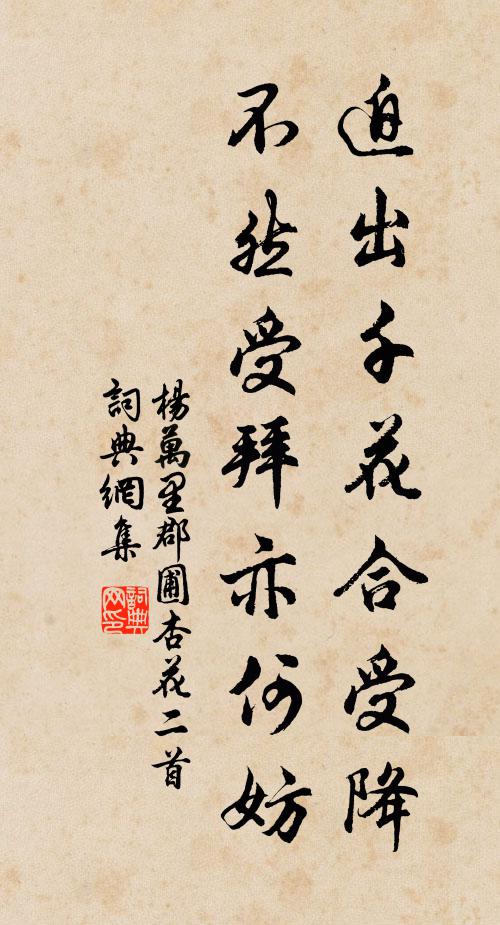 迥出千花合受降
不然受拜亦何妨
楊萬里郡圃杏花二首
詞典網集
詞典网印